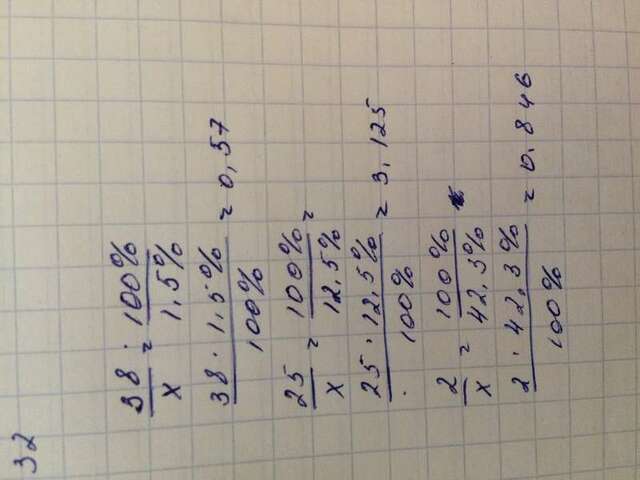 32
38/x = 100%/1,5%
38 · 1,5%/100% = 0,57
25/x = 100%/12,5% =
25 · 12,5%/100% = 3,125
2/x = 100%/42,3%
2 · 42,3%/100% = 0.846